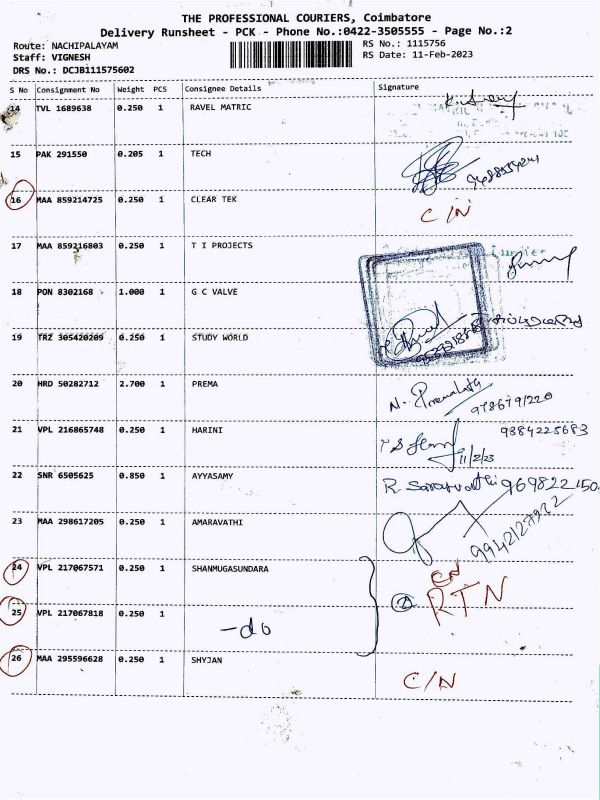 THE PROFESSIONAL COURIERS, Coimbatore
Delivery Runsheet - PCK - Phone No.:0422-3505555 - Page No.:2
Route: NACHIPALAYAM RS No.: 1115756
Staff: VIGNESH RS Date: 11-Feb-2023
DRS No.: DCJB111575602
S No Consignment No Weight PCS Consignee Details Signature
14 TVL 1689638 0.250 1 RAVEL MATRIC
15 PAK 291550 0.205 1 TECH
16 MAA 859214725 0.250 1 CLEAR TEK C/N
17 MAA 859216803 0.250 1 T I PROJECTS
18 PON 8302168 1.000 1 G C VALVE
19 TRZ 305420209 0.250 1 STUDY WORLD
20 HRD 50282712 2.700 1 PREMA N. Premalatha
9786791220
21 VPL 216865748 0.250 1 HARINI 9384225683
11/2/23
22 SNR 6505625 0.850 1 AYYASAMY R. Saraswathi 969822150
23 MAA 298617205 0.250 1 AMARAVATHI 9942127932
24 VPL 217067571 0.250 1 SHANMUGASUNDARA CN
② RTN
25 VPL 217067818 0.250 1 -do
26 MAA 295596628 0.250 1 SHYJAN C/N